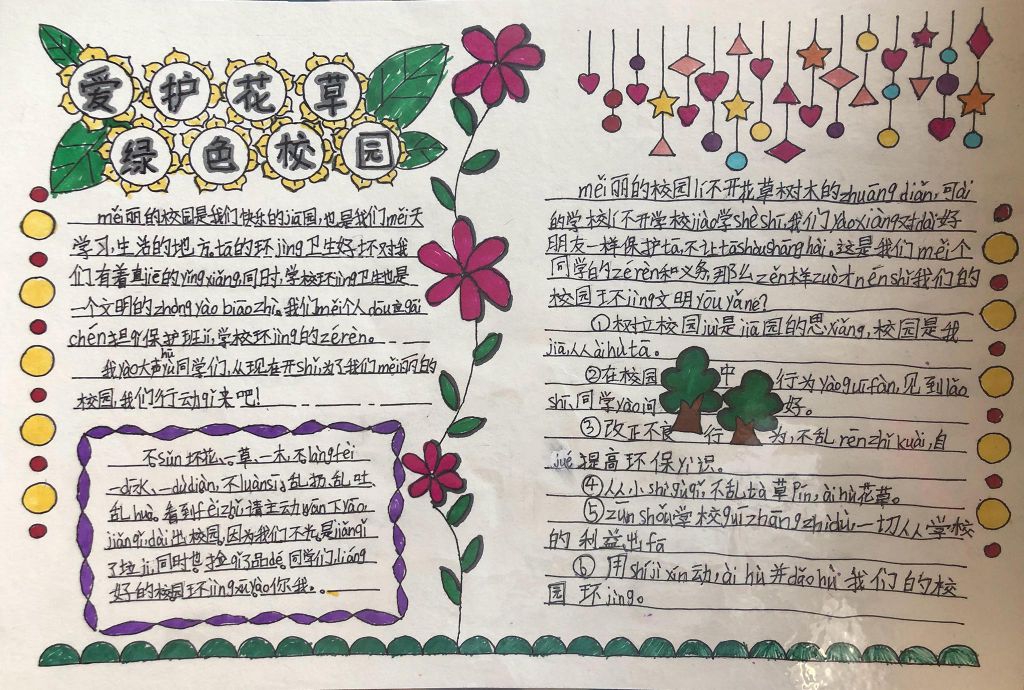 爱护花草
绿色校园
měi丽的校园是我们快乐的jiā园,也是我们měi天
学习,生活的地方。ta的环jìng卫生好坏对我
们有着直jiē的yǐngxiǎng,同时,学校环jìng卫生也是
一个文明的zhòngyào biāozhì。我们měi个人dōu应gāi
chéng担们保护班jí,学校环jìng的zérèn。
我yào大声hū yù同学们,从现在开shǐ,为了我们měi丽的
校园,我们行动qǐ来吧!
不sǔn坏花、一草,一木,不làngfèi
一dī水、一dùdiàn,不luànsī、乱扔、乱吐、
乱huà。看到fèizhǐ,请主动wān下yāo
jiǎnqǐ,dài出校园,因为我们不光是jiǎnqǐ
了垃jī,同时也捡qǐ了品dé。同学们,liáng
好的校园环jìngxūyào你我。
měi丽的校园lí不开花草树木的zhuāngdiǎn,可ài
的学校lí不开学校jiào学shèshī,我们yàoxiàng对dài好
朋友一样保护tā,不让tāshòushānghài。这是我们měi个
同学的zérèn和义务,那么zěn样zuò才néngshǐ我们的
校园环jìng文明yōuyǎ呢?
①树立校园jiù是jiā园的思xiǎng,校园是我
jiā,人人àihùtā。
②在校园中行为yàoguīfàn,见到lǎo
shī、同学yào问好。
③改正不良行为,不乱rēnzhǐkuài,自
jué提高环保yì识。
④从小shìqǐ,不乱tà草píng,àihù花草。
⑤zūnshǒu学校guīzhāngzhìdù,一切从学校
的利益出fā
⑥用shíjìxíng动,àihù并dǎohù我们的校
园环jìng。